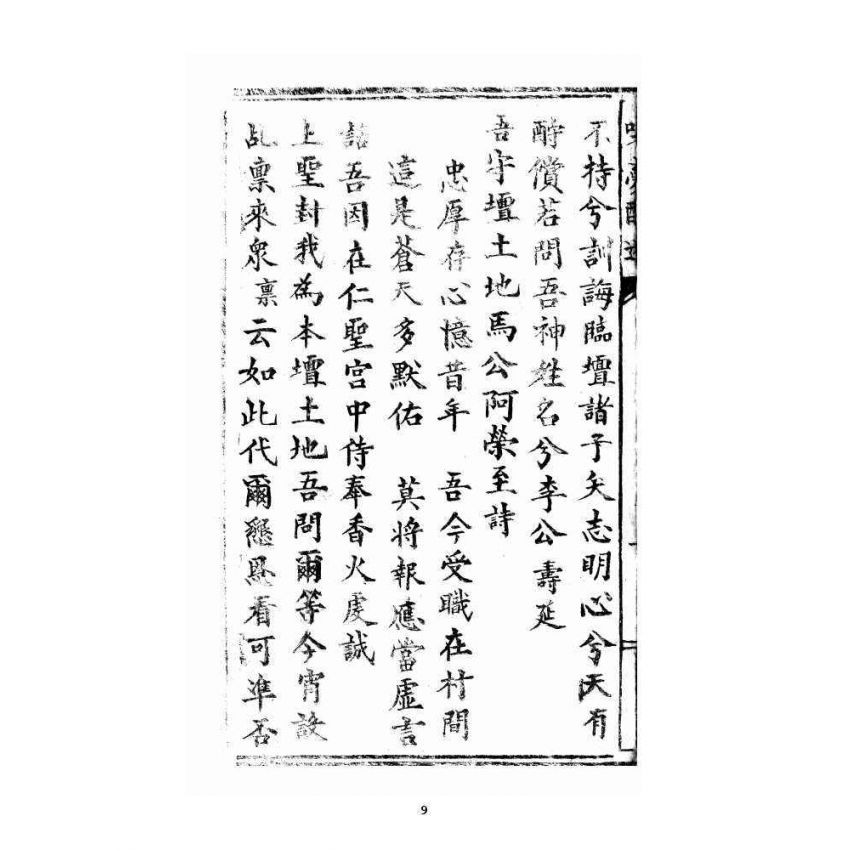 不持兮訓誨臨壇諸子矢志明心兮天有
酧償若問吾神姓名兮李公壽延
吾守壇土地馬公阿榮至詩
忠厚存心憶昔年 吾今受職在村間
這是蒼天多默佑 莫將報應當虛言
話吾因在仁聖宮中侍奉香火虔誠
上聖封我為本壇土地吾問爾等今宵設
乩稟來眾稟云如此代爾懇恩看可準否
9